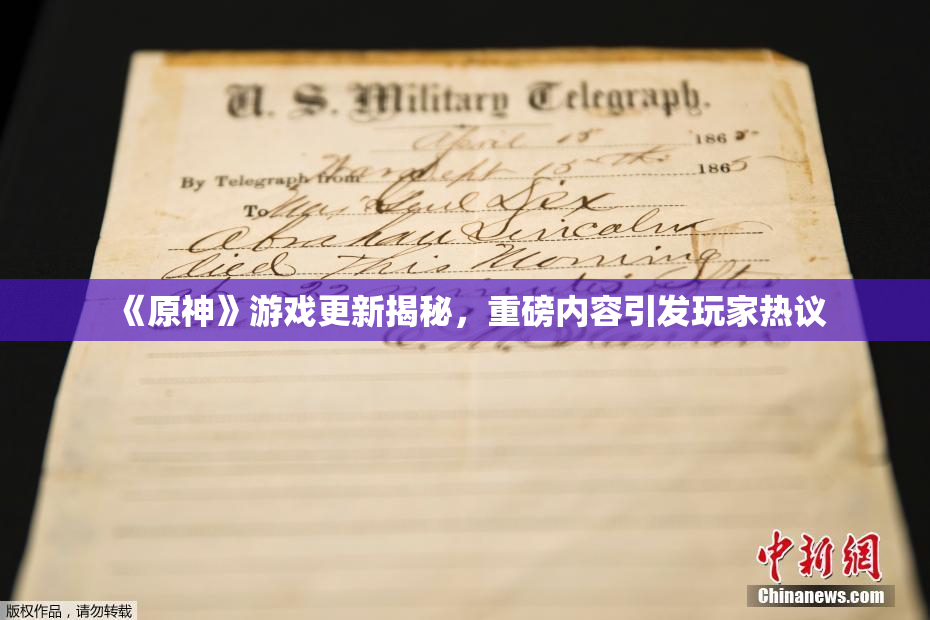 U. S. Military Telegraph.
April 15 1865
By Telegraph from War Dept 15th 1865
To Maj Genl Dix
Abraham Lincoln
died This Morning
at 22 minutes after
《原神》游戏更新揭秘，重磅内容引发玩家热议
E. M. Stanton
中新网
Chinanews.com
版权作品，请勿转载